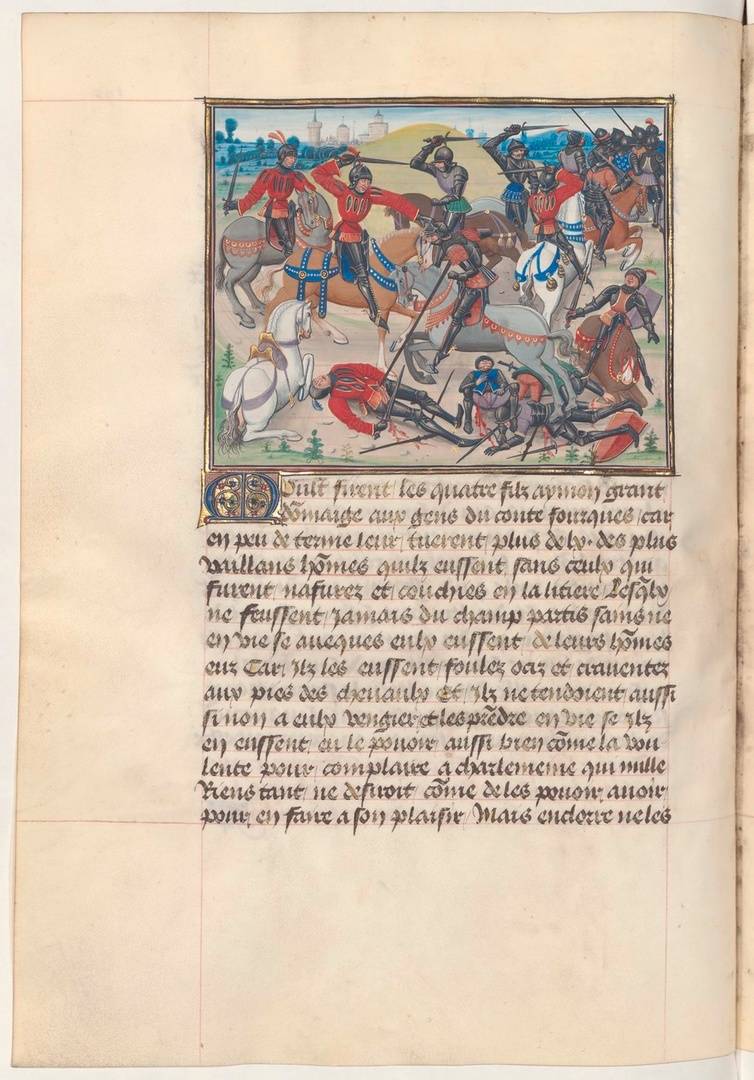 Moult firent les quatre filz aymon grant
dōmaige aux gens du conte fourques car
en peu de terme leur tuerent plus de lx. des plus
vaillans hōmes quilz eussent sans ceulx qui
furent nafurez et couchies en la litiere Lesqlx
ne feussent jamais du champ partis sains ne
en vie se aueques eulx eussent de leurs hōmes
euz Car jlz les eussent foulez ocis et crauentez
aux pies des cheuaulx Et jlz ne tendoient aussi
si non a eulx vengier et les prēdre en vie se jlz
en eussent eu le pouoir aussi bien cōme la vou
lente pour complaire a charlemeine qui nulle
Riens tant ne desiroit cōme de les pouoir auoir
pour en faire a son plaisir Mais enclorre ne les